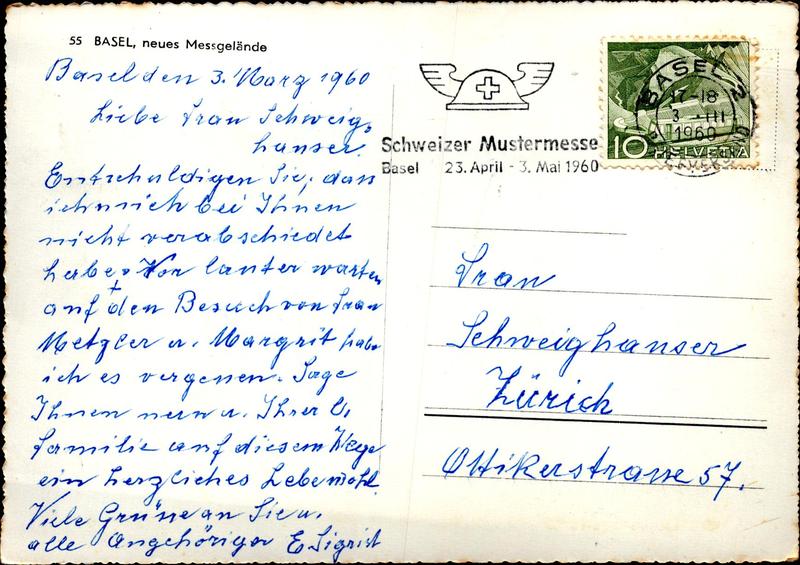 55 BASEL, neues Messgelände
Basel den 3. März 1960
Liebe Frau Schweig-
hauser.
Entschuldigen Sie, dass
ich mich bei Ihnen
nicht verabschiedet
habe. Vor lauter warten
auf den Besuch von Frau
Metzler u. Margrit habe
ich es vergessen. Sage
Ihnen nun u. Ihrer l.
Familie auf diesem Wege
ein herzliches Lebewohl.
Viele Grüsse an Sie u.
alle Angehörige E. Sigrist
Schweizer Mustermesse
Basel 23. April - 3. Mai 1960
BASEL 2
17-18
3.-III
1960
10 HELVETIA
Frau
Schweighauser
Zürich
Ottikerstrasse 57.